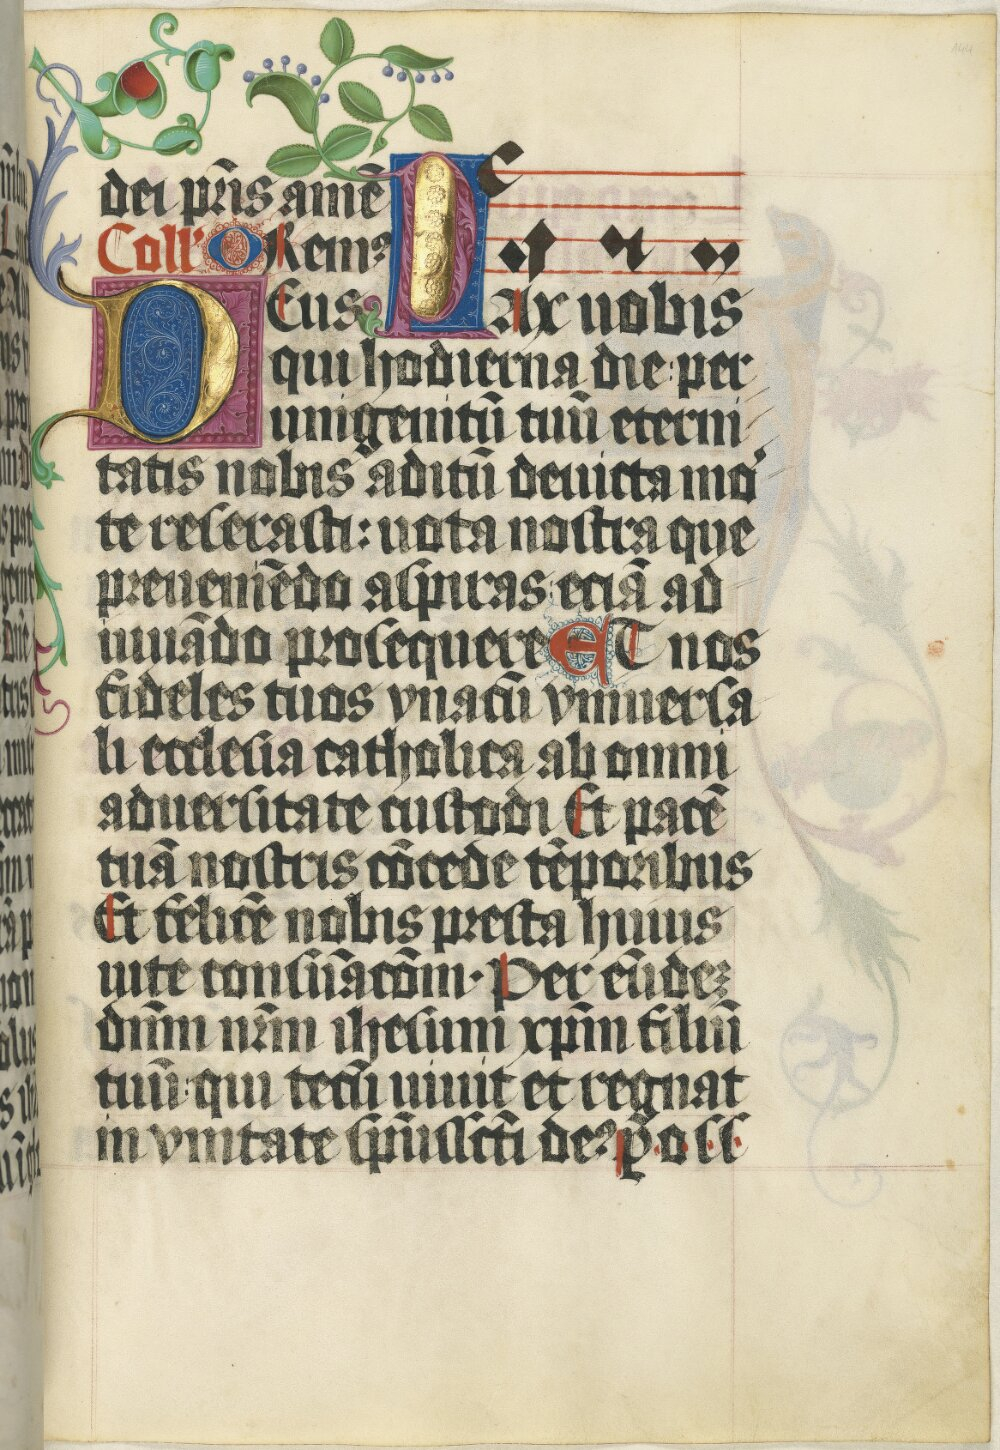 dei pr̄is amē
Coll' Orem⁹
PAx uobis
DEus
qui hodierna die: per
unigenitū tuū eterni
tatis nobis aditū deuicta mo'
te reserasti: uota nostra que
preueniēdo aspiras: eciā ad
iuuādo prosequere ET nos
fideles tuos vnacū vniuersa
li ecclesia catholica ab omni
aduersitate custodi Et pacē
tuā nostris cōcede tēporibus
Et felicē nobis presta huius
uite consūacōm. Per eūdeꝫ
dn̄m nr̄m ihesum xp̄m filiū
tuū: qui tecū uiuit et regnat
in vnitate sp̄ussc̄ti de⁹ p̄. o. s. s.
144